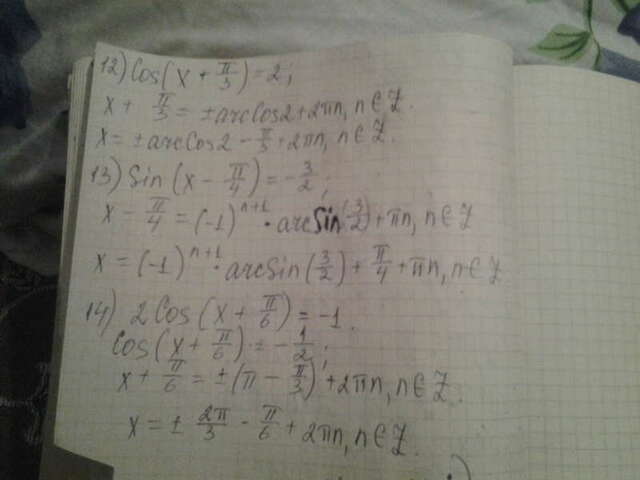 12) Cos(x + π/3) = 2;
x + π/3 = ±arcCos2 + 2πn, n ∈ Z.
x = ±arcCos2 - π/3 + 2πn, n ∈ Z.
13) Sin(x - π/4) = -3/2;
x - π/4 = (-1)^{n+1} · arcSin(3/2) + πn, n ∈ Z
x = (-1)^{n+1} · arcSin(3/2) + π/4 + πn, n ∈ Z
14) 2Cos(x + π/6) = -1.
Cos(x + π/6) = -1/2;
x + π/6 = ±(π - π/3) + 2πn, n ∈ Z.
x = ± 2π/3 - π/6 + 2πn, n ∈ Z.